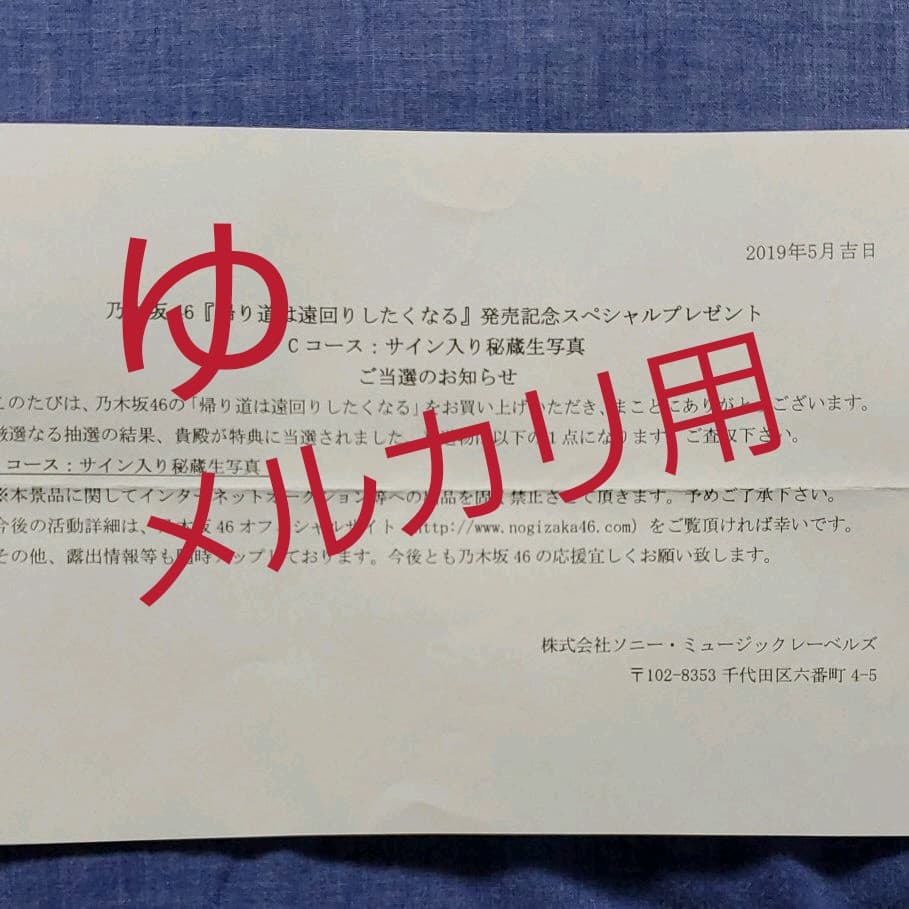 2019年5月吉日
乃坂46『帰り道は遠回りしたくなる』発売記念スペシャルプレゼント
Cコース：サイン入り秘蔵生写真
ご当選のお知らせ
このたびは、乃木坂46の「帰り道は遠回りしたくなる」をお買い上げいただき、まことにありがとうございます。
厳選なる抽選の結果、貴殿が特典に当選されました 以下の1点になります ご査収下さい。
コース：サイン入り秘蔵生写真
※本景品に関してインターネットオークション等への出品を固く禁止させて頂きます。予めご了承下さい。
今後の活動詳細は、乃木坂46オフィシャルサイト（http://www.nogizaka46.com）をご覧頂ければ幸いです。
その他、露出情報等も随時アップしております。今後とも乃木坂46の応援宜しくお願い致します。
株式会社ソニー・ミュージックレーベルズ
〒102-8353 千代田区六番町4-5
ゆ
メルカリ用